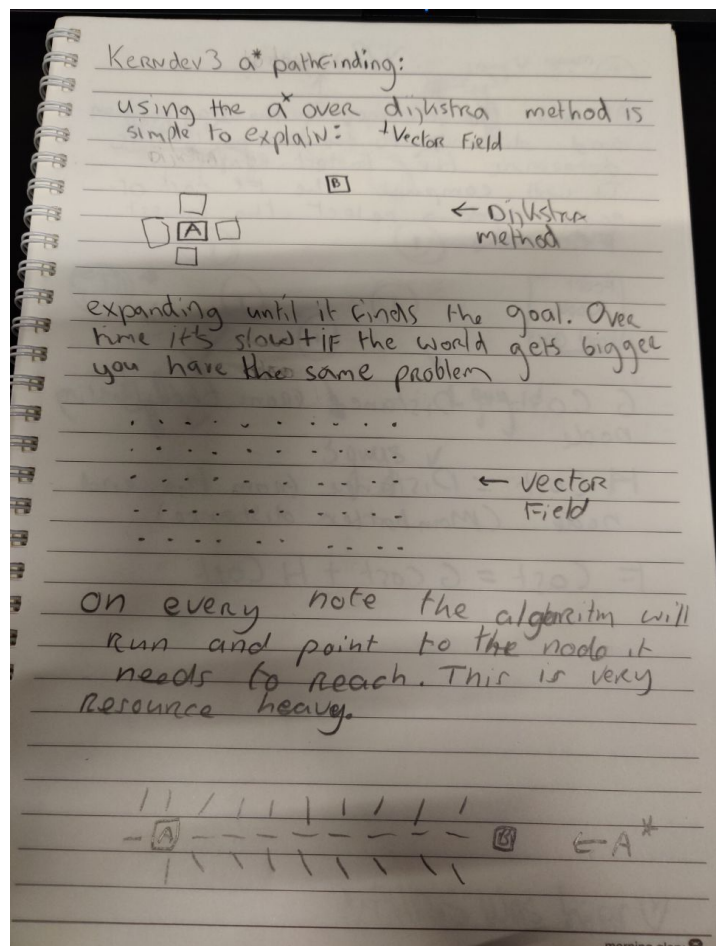 Kerndev3 a* pathfinding:
using the a* over dijkstra method is
simple to explain: + Vector Field
B
← Dijkstra
method
A
expanding until it finds the goal. Over
time it's slow + if the world gets bigger
you have the same problem
← vector
Field
On every note the algoritm will
Run and point to the node it
needs to reach. This is very
Resource heavy.
A
B
← A*